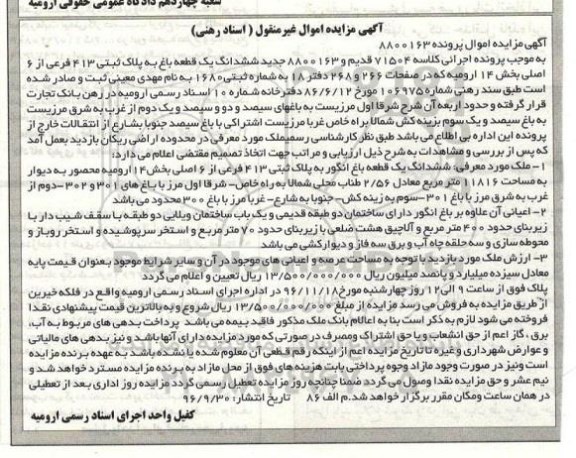 شعبه چهاردهم دادگاه عمومی حقوقی ارومیه
آگهی مزایده اموال غیرمنقول ( اسناد رهنی)
آگهی مزایده اموال پرونده ۸۸۰۰۱۶۳
به موجب پرونده اجرائی کلاسه ۷۱۵۰۴ قدیم و ۸۸۰۰۱۶۳ جدید ششدانگ یک قطعه باغ به پلاک ثبتی ۴۱۳ فرعی از ۶
اصلی بخش ۱۴ ارومیه که در صفحات ۲۶۶ و ۲۶۸ دفتر ۱۸ به شماره ثبتی ۱۶۸۰ به نام مهدی معینی ثبت و صادر شده
است طبق سند رهنی شماره ۱۰۶۹۷۵ مورخ ۸۶/۶/۱۲ دفترخانه شماره ۱۰ اسناد رسمی ارومیه در رهن بانک تجارت
قرار گرفته و حدود اربعه آن شرح شرقا اول مرزیست به باغهای سیصد و دو و سیصد و یک دوم از غرب به شرق مرزیست
به باغ سیصد و یک سوم بزینه کش شمالا به راه خاص غربا مرزیست اشتراکی با باغ سیصد جنوبا بشارع از انتقالات خارج از
پرونده این اداره بی اطلاع می باشد طبق نظر کارشناسی رسمی ملک مورد معرفی در محدوده اراضی ریکان بازدید بعمل آمد
که پس از بررسی و مشاهدات به شرح ذیل ارزیابی و مراتب جهت اتخاذ تصمیم مقتضی اعلام می دارد:
۱- ملک مورد معرفی: ششدانگ یک قطعه باغ انگور به پلاک ثبتی ۴۱۳ فرعی از ۶ اصلی بخش ۱۴ ارومیه محصور به دیوار
به مساحت ۱۱۸۱۶ متر مربع معادل ۲/۵۶ طناب محلی شمالا به راه خاص- شرقا اول مرز با باغ های ۳۰۱ و ۳۰۲ -دوم از
غرب به شرق مرز با باغ ۳۰۱ -سوم به زینه کش- جنوبا به شارع- غربا مرز با باغ ۳۰۰ محدود می باشد
۲- اعیانی آن علاوه بر باغ انگور دارای ساختمان دو طبقه قدیمی و یک باب ساختمان ویلایی دو طبقه با سقف شیب دار با
زیربنای حدود ۴۰۰ متر مربع و آلاچیق هشت ضلعی با زیربنای حدود ۷۰ متر مربع و استخر سرپوشیده و استخر روباز و
محوطه سازی و سه حلقه چاه آب و برق سه فاز و دیوارکشی می باشد
۳- ارزش ملک مورد بازدید با توجه به مساحت عرصه و اعیانی های موجود در آن و سایر شرایط موجود بعنوان قیمت پایه
معادل سیزده میلیارد و پانصد میلیون ریال ۱۳/۵۰۰/۰۰۰/۰۰۰ ریال تعیین و اعلام می گردد
پلاک فوق از ساعت ۹ الی ۱۲ روز چهارشنبه مورخ ۹۶/۱۱/۱۸ در اداره اجرای اسناد رسمی ارومیه واقع در فلکه خیرین
از طریق مزایده به فروش می رسد مزایده از مبلغ ۱۳/۵۰۰/۰۰۰/۰۰۰ ریال شروع و به بالاترین قیمت پیشنهادی نقدا
فروخته می شود لازم به ذکر است بنا به اعلام بانک ملک مذکور فاقد بیمه می باشد پرداخت بدهی های مربوط به آب،
برق ، گاز اعم از حق انشعاب و یا حق اشتراک و مصرف در صورتی که مورد مزایده دارای آنها باشد و نیز بدهی های مالیاتی
و عوارض شهرداری و غیره تا تاریخ مزایده اعم از اینکه رقم قطعی آن معلوم شده یا نشده باشد به عهده برنده مزایده
است ونیز در صورت وجود مازاد وجوه پرداختی بابت هزینه های فوق از محل مازاد به برنده مزایده مسترد خواهد شد و
نیم عشر و حق مزایده نقدا وصول می گردد ضمنا چنانچه روز مزایده تعطیل رسمی گردد مزایده روز اداری بعد از تعطیلی
در همان ساعت ومکان مقرر برگزار خواهد شد. م الف ۸۶ تاریخ انتشار: ۹۶/۹/۳۰
کفیل واحد اجرای اسناد رسمی ارومیه